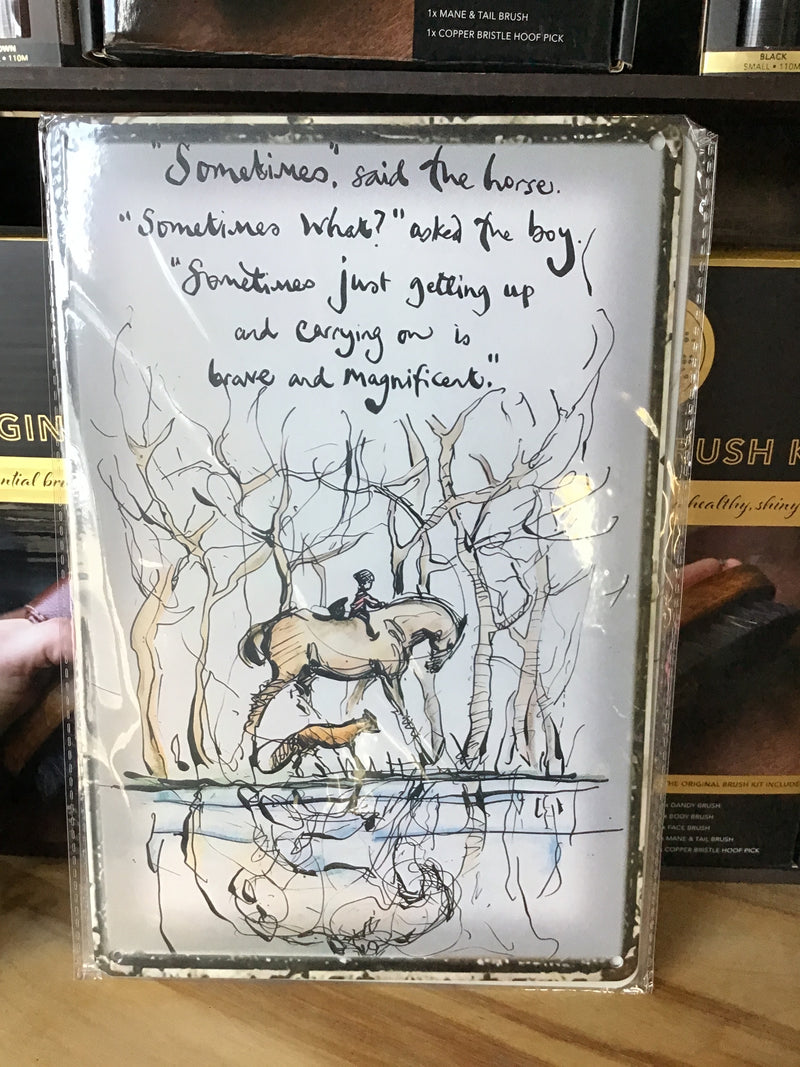 1x MANE & TAIL BRUSH
1x COPPER BRISTLE HOOF PICK
OWN
• 110M
BLACK
SMALL • 110M
"Sometimes", said the horse.
"Sometimes what?" asked the boy.
"Sometimes just getting up
and carrying on is
brave and magnificent."
GIN
ntial bru
RUSH K
healthy, shiny
THE ORIGINAL BRUSH KIT INCLUDE
DANDY BRUSH
BODY BRUSH
FACE BRUSH
MANE & TAIL BRUSH
COPPER BRISTLE HOOF PICK